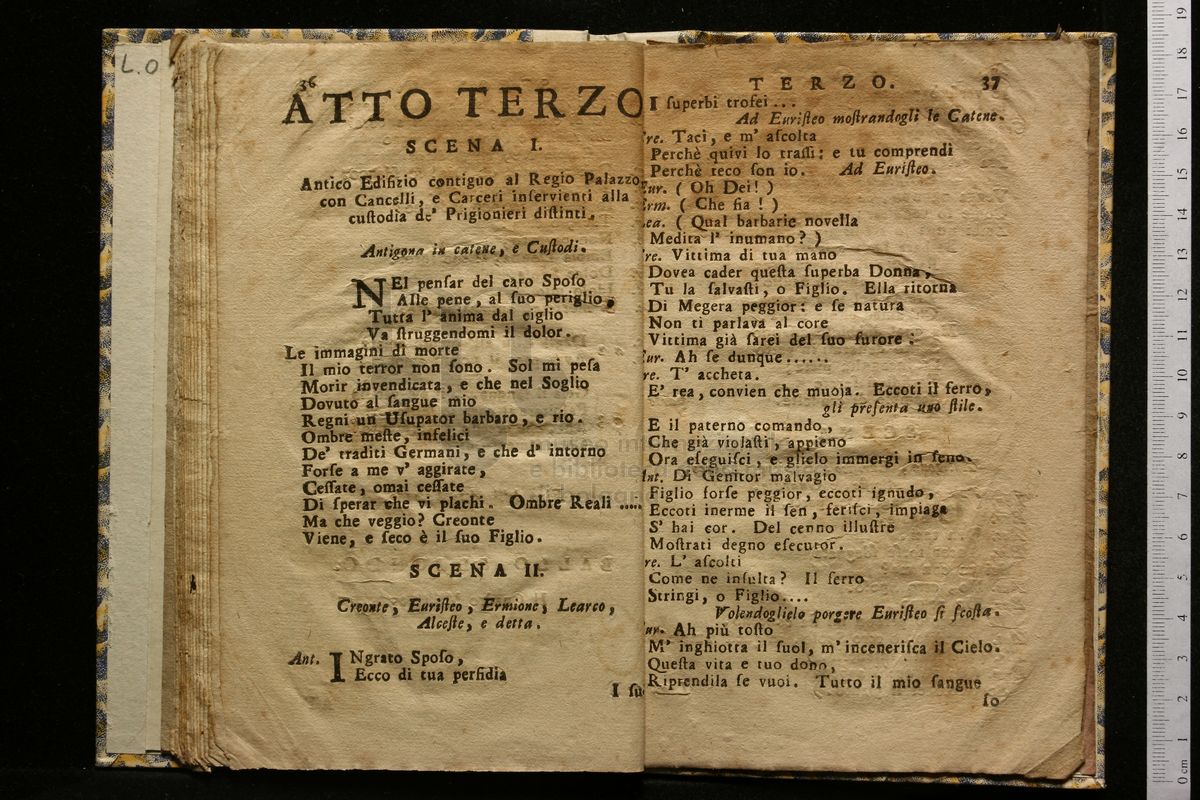 L.O
36
ATTO TERZO
SCENA I.
Antico Edifizio contiguo al Regio Palazzo
con Cancelli, e Carceri inservienti alla
custodia de' Prigionieri distinti.
Antigona in catene, e Custodi.
NEl pensar del caro Sposo
Alle pene, al suo periglio,
Tutta l' anima dal ciglio
Va struggendomi il dolor.
Le immagini di morte
Il mio terror non sono. Sol mi pesa
Morir invendicata, e che nel Soglio
Dovuto al sangue mio
Regni un Usupator barbaro, e rio.
Ombre meste, infelici
De' traditi Germani, e che d' intorno
Forse a me v' aggirate,
Cessate, omai cessate
Di sperar che vi plachi. Ombre Reali .....
Ma che veggio? Creonte
Viene, e seco è il suo Figlio.
SCENA II.
Creonte, Euristeo, Ermione, Learco,
Alceste, e detta.
Ant. INgrato Sposo,
Ecco di tua perfidia
I su
TERZO. 37
I superbi trofei ...
Ad Euristeo mostrandogli le Catene.
re. Taci, e m' ascolta
Perchè quivi lo trassi: e tu comprendi
Perchè teco son io. Ad Euristeo.
Eur. ( Oh Dei! )
Erm. ( Che fia ! )
Lea. ( Qual barbarie novella
Medita l' inumano? )
re. Vittima di tua mano
Dovea cader questa superba Donna,
Tu la salvasti, o Figlio. Ella ritorna
Di Megera peggior: e se natura
Non ti parlava al core
Vittima già sarei del suo furore:
Eur. Ah se dunque......
re. T' accheta.
E' rea, convien che muoja. Eccoti il ferro,
gli presenta uno stile.
E il paterno comando,
Che già violasti, appieno
Ora eseguisci, e glielo immergi in seno.
Ant. Di Genitor malvagio
Figlio forse peggior, eccoti ignudo,
Eccoti inerme il sen, ferisci, impiaga
S' hai cor. Del cenno illustre
Mostrati degno esecutor.
re. L' ascolti
Come ne insulta? Il ferro
Stringi, o Figlio....
Volendoglielo porgere Euristeo si scosta.
ur. Ah più tosto
M' inghiotta il suol, m' incenerisca il Cielo.
Questa vita e tuo dono,
Riprendila se vuoi. Tutto il mio sangue
Io